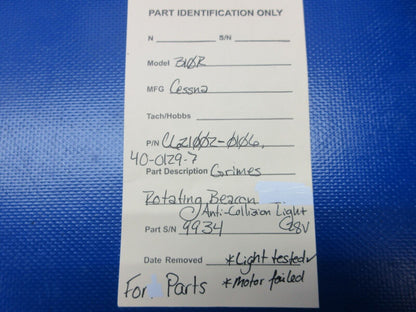 PART IDENTIFICATION ONLY
N S/N
Model 310R
MFG Cessna
Tach/Hobbs
P/N CL21002-0106,
40-0129-7
Part Description Grimes
Rotating Beacon
C/Anti-Collision Light
Part S/N 9934 28V
Date Removed *Light tested✓
For Parts *Motor failed